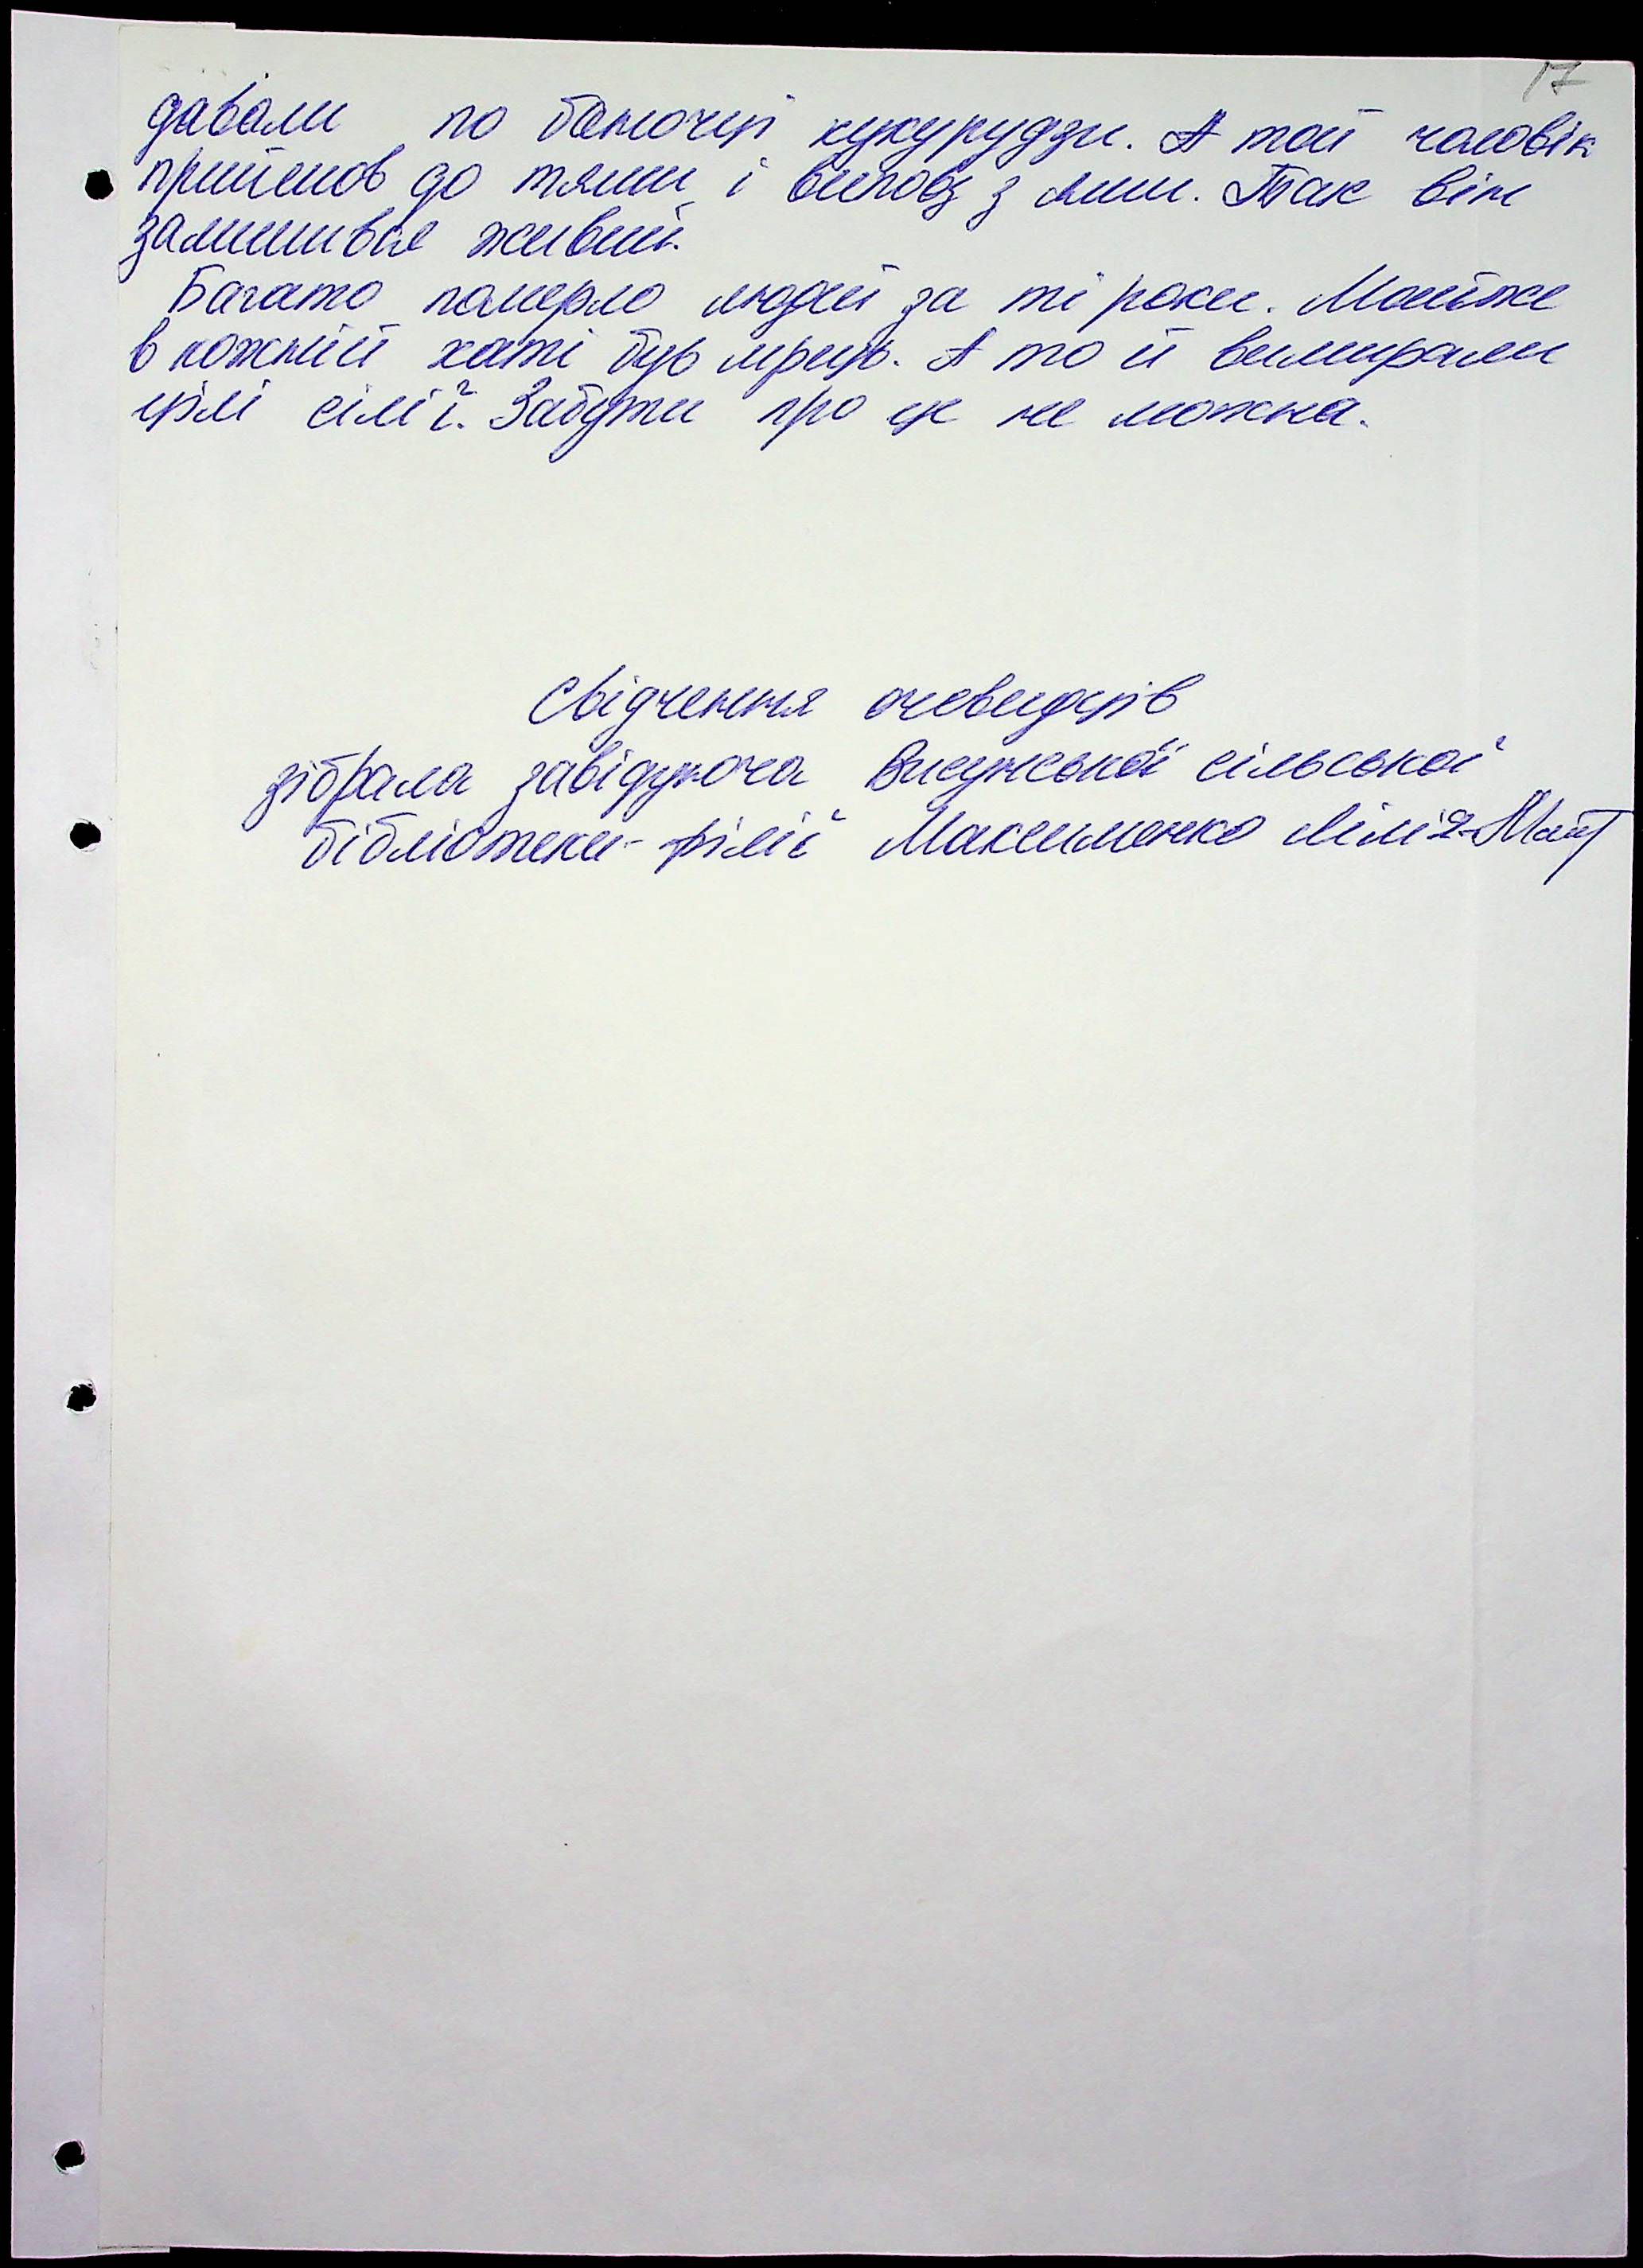 17
давали по баночці кукурудзи. А той чоловік
прийшов до тями і виповз з ями. Так він
залишився живий.
Багато померло людей за ті роки. Майже
в кожній хаті був мрець. А то й вимирали
цілі сімї. Забути про це не можна.
Свідчення очевидців
зібрала завідуюча Висунської сільської
бібліотеки-філії Максименко Лілія